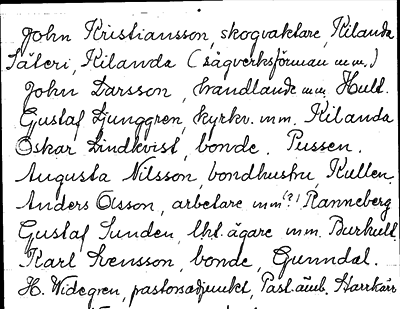 John Kristiansson, skogvaktare, Kilanda
Säteri, Kilanda (sågverksförman m.m.)
John Larsson, handlande m.m. Hult.
Gustaf Ljunggren, kyrkv. m.m. Kilanda
Oskar Lindkvist, bonde. Pussen.
Augusta Nilsson, bondhustru, Kullen.
Anders Olsson, arbetare m.m (?) Ranneberg
Gustaf Sunden, lht. ägare m.m. Burkull.
Karl Svensson, bonde, Gunndal.
H. Widegren, pastorsadjunkt, Past. Starrkärr